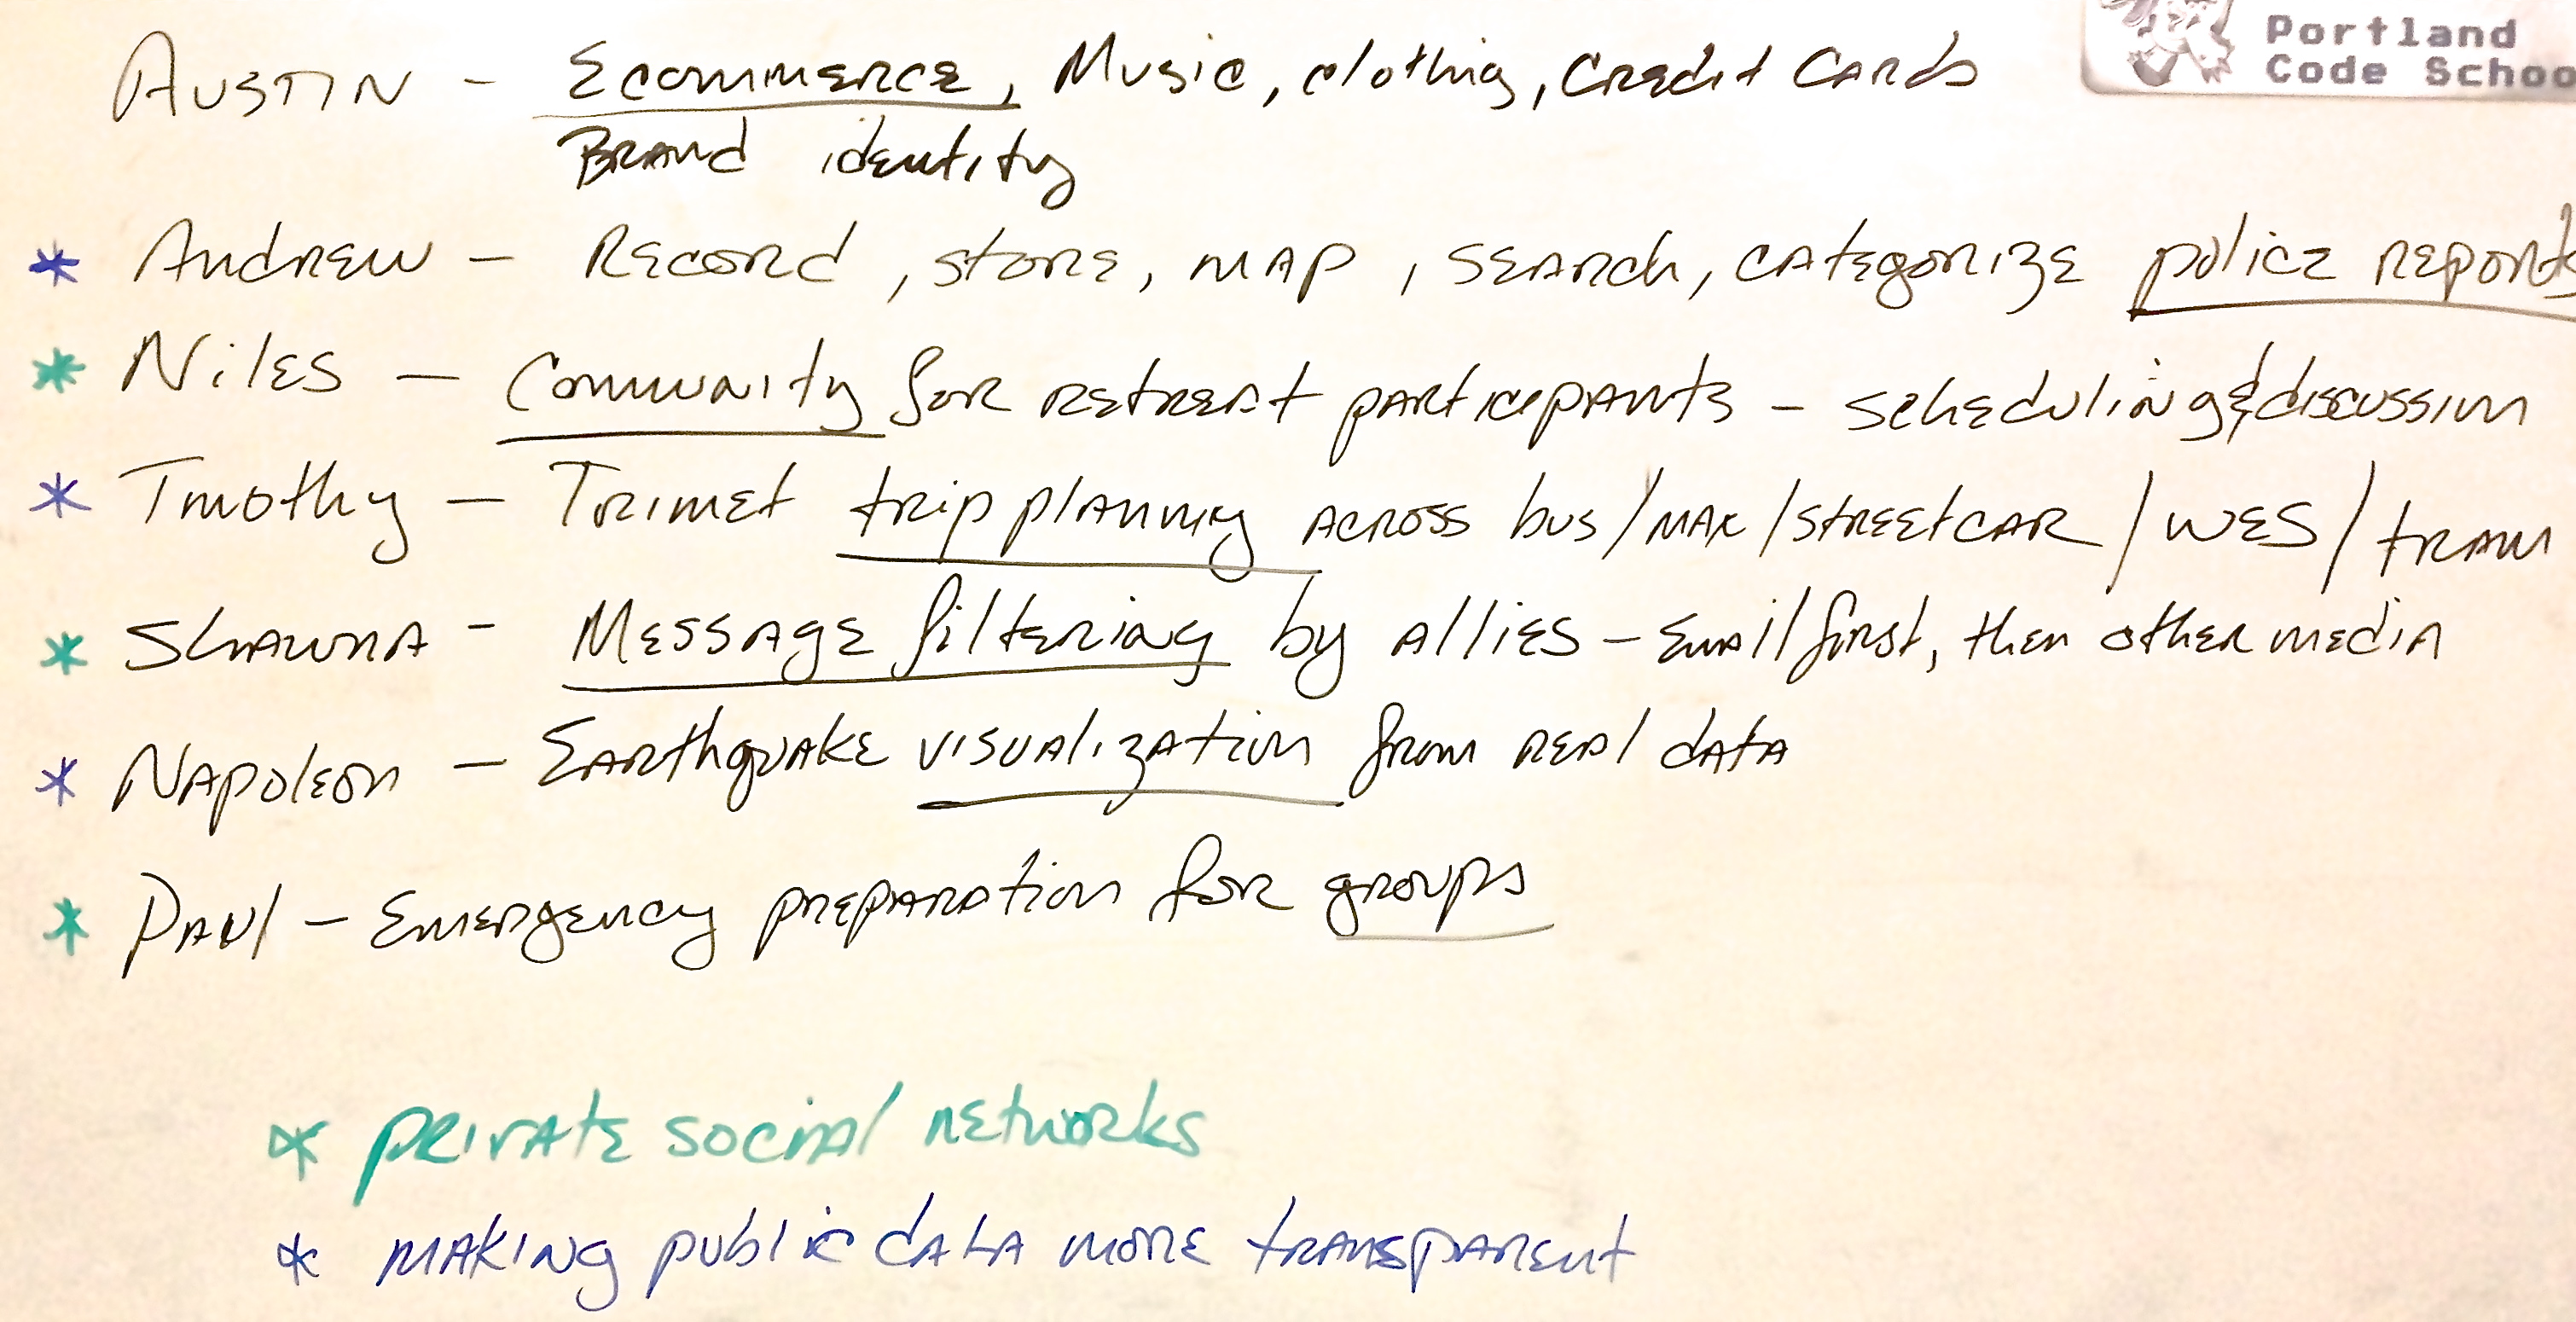 Portland
Code Schoo
AUSTIN - Ecommerce, Music, clothing, Credit Cards
Brand identity
* Andrew - Record, store, map, search, categorize police reports
* Niles - Community for retreat participants - scheduling & discussion
* Tmothy - Trimet trip planning across bus/MAX/streetcar/WES/tram
* Shawna - Message filtering by allies - Email first, then other media
* Napoleon - Earthquake visualization from real data
* Paul - Emergency preparation for groups
* private social networks
* making public data more transparent